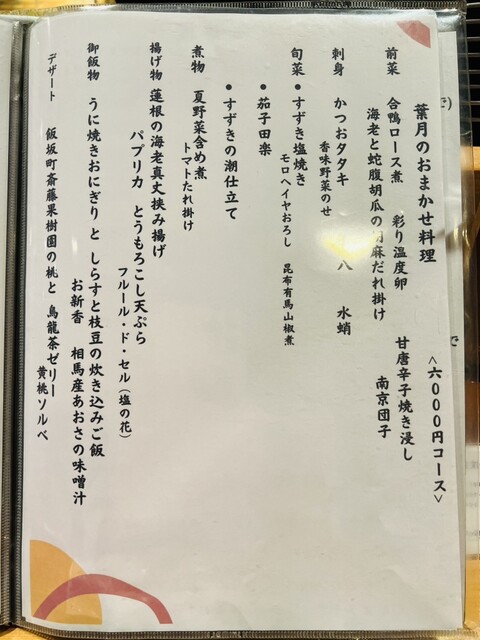 葉月のおまかせ料理
<六000円コース>
前菜 合鴨ロース煮 彩り温度卵 甘唐辛子焼き浸し
海老と蛇腹胡瓜の胡麻だれ掛け 南京団子
刺身 かつおタタキ 八 水蛸
香味野菜のせ
旬菜 ●すずき塩焼き
モロヘイヤおろし 昆布有馬山椒煮
●茄子田楽
●すずきの潮仕立て
煮物 夏野菜含め煮
トマトたれ掛け
揚げ物 蓮根の海老真丈挟み揚げ
パプリカ とうもろこし天ぷら
フルール・ド・セル(塩の花)
御飯物 うに焼きおにぎり と しらすと枝豆の炊き込みご飯
お新香 相馬産あおさの味噌汁
デザート 飯坂町斎藤果樹園の桃と 烏龍茶ゼリー
黄桃ソルベ